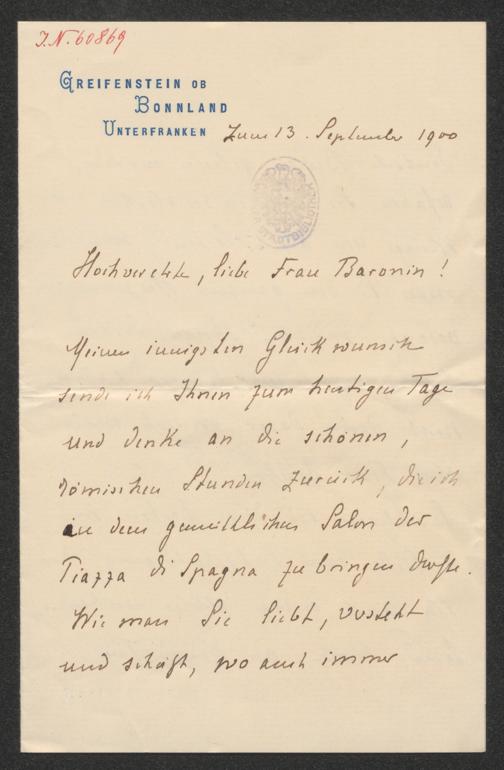 J.N. 60869
GREIFENSTEIN OB
BONNLAND
UNTERFRANKEN
Zum 13. September 1900
STADTBIBLIOTHEK
Hochverehrte, liebe Frau Baronin!
Meinen innigsten Glückwunsch
sende ich Ihnen zum heutigen Tage
und denke an die schönen,
römischen Stunden zurück, die ich
in dem gemüthlichen Salon der
Piazza di Spagna zubringen durfte.
Wie man Sie liebt, versteht
und schätzt, wo auch immer